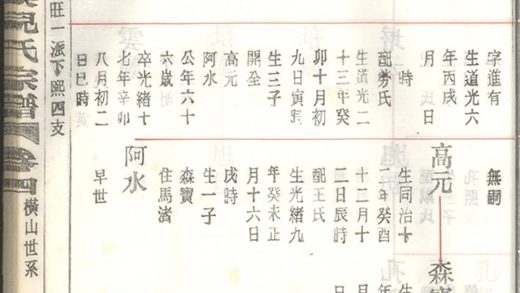 字進有
生道光六
年丙戌
月
時
配勞氏
生道光二
十三年癸
卯十月初
九日寅時
生三子
開全
高元
阿水
公年六十
六歲
卒光緒十
七年辛卯
八月初二
日巳時
無嗣
高元
生同治十
二年癸酉
十二月十
二日辰時
配王氏
生光緒九
年癸未正
月十六日
戌時
生一子
森寶
住馬渚
阿水
早世
森寶
旺一派下熙四支
氏宗譜
卷四
橫山世系